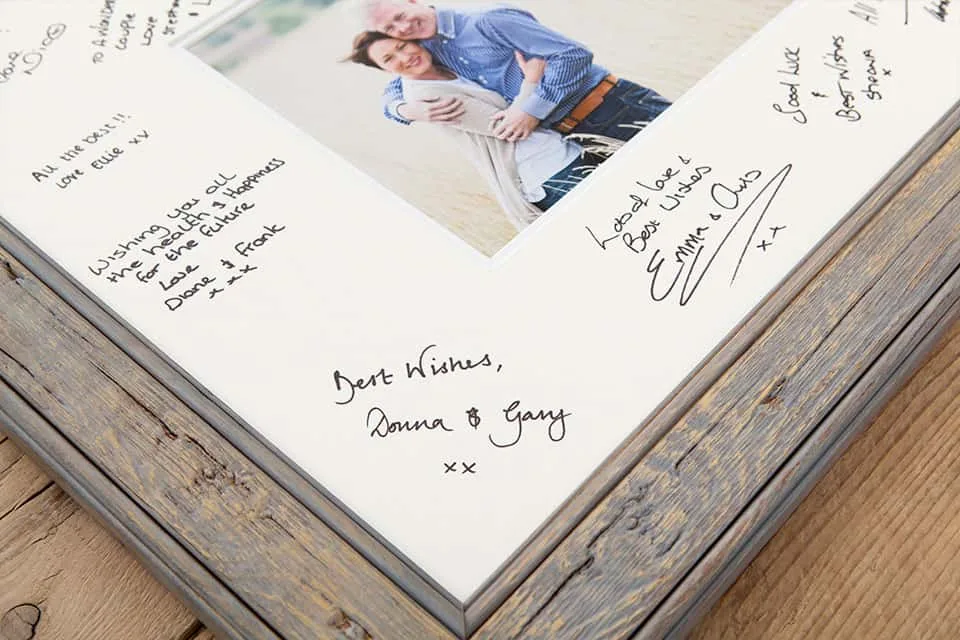 Nic
To Amanda
couple
love
All the best!!
love Ellie xx
Wishing you all
the health & Happiness
for the future
Love
Diane & Frank
x x x
Best Wishes,
Donna & Gary
xx
Lots of love &
Best Wishes
Emma & Chris
x x
Good Luck
&
Best Wishes
x
All